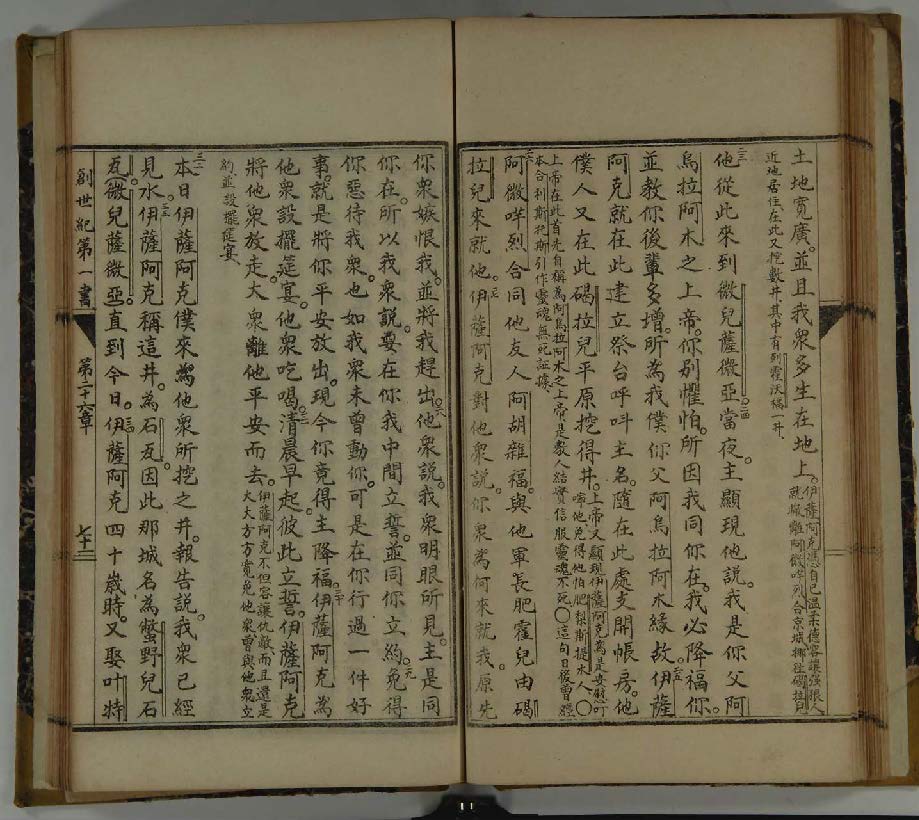 土地寬廣。並且我衆多生在地上。伊薩阿克憑自己溫柔德容讓强狠人
就規離阿微哶烈合京城挪徃碣拉兒
近地居住在此又挖數井其中有到霍沃稱一井
二三他從此來到微兒薩微亞。二四當夜。主顯現他說。我是你父阿
烏拉阿木之上帝。你别懼怕。所因我同你在。我必降福你。
並教你後輩多增。所為我僕你父阿烏拉阿木緣故。二五伊薩
阿克就在此建立祭台呼呌主名。隨在此處支開帳房。他
僕人又在此碣拉兒平原挖得井。上帝又顯現伊薩阿克為是安慰叮
嚀他免得他怕肥梨斯提木人○
上帝在此首先自稱為阿烏拉阿木之上帝是衆人結實信服靈魂不死○這句日後曽經
本合利斯托斯引作靈魂無死証據
二六阿微哶烈合同他友人阿胡雜福。與他軍長肥霍兒由碣
拉兒來就他。二七伊薩阿克對他衆說。你衆為何來就我。原先
你衆嫉恨我。並將我趕出。二八他衆說。我衆明眼所見。主是同
你在。所以我衆說。要在你我中間立誓。並同你立約。二九免得
你惡待我衆。也如我衆未曾動你。可是在你行過一件好
事。就是將你平安放出。現今你竟得主降福。三十伊薩阿克為
他衆設擺筵宴。他衆吃喝。三一清晨早起。彼此立誓。伊薩阿克
將他衆放走。大衆離他平安而去。伊薩阿克不但容讓仇敵而且還是
大大方方寬免他衆曽與他衆立
約並設擺筵宴
三二本日伊薩阿克僕來為他衆所挖之井。報告說。我衆已經
見水。三三伊薩阿克稱這井。為石亙。因此那城名為蟹野兒石
亙。微兒薩微亞。直到今日。三四伊薩阿克四十歲時。又娶叶特
創世紀第一書
第二十六章
七十二